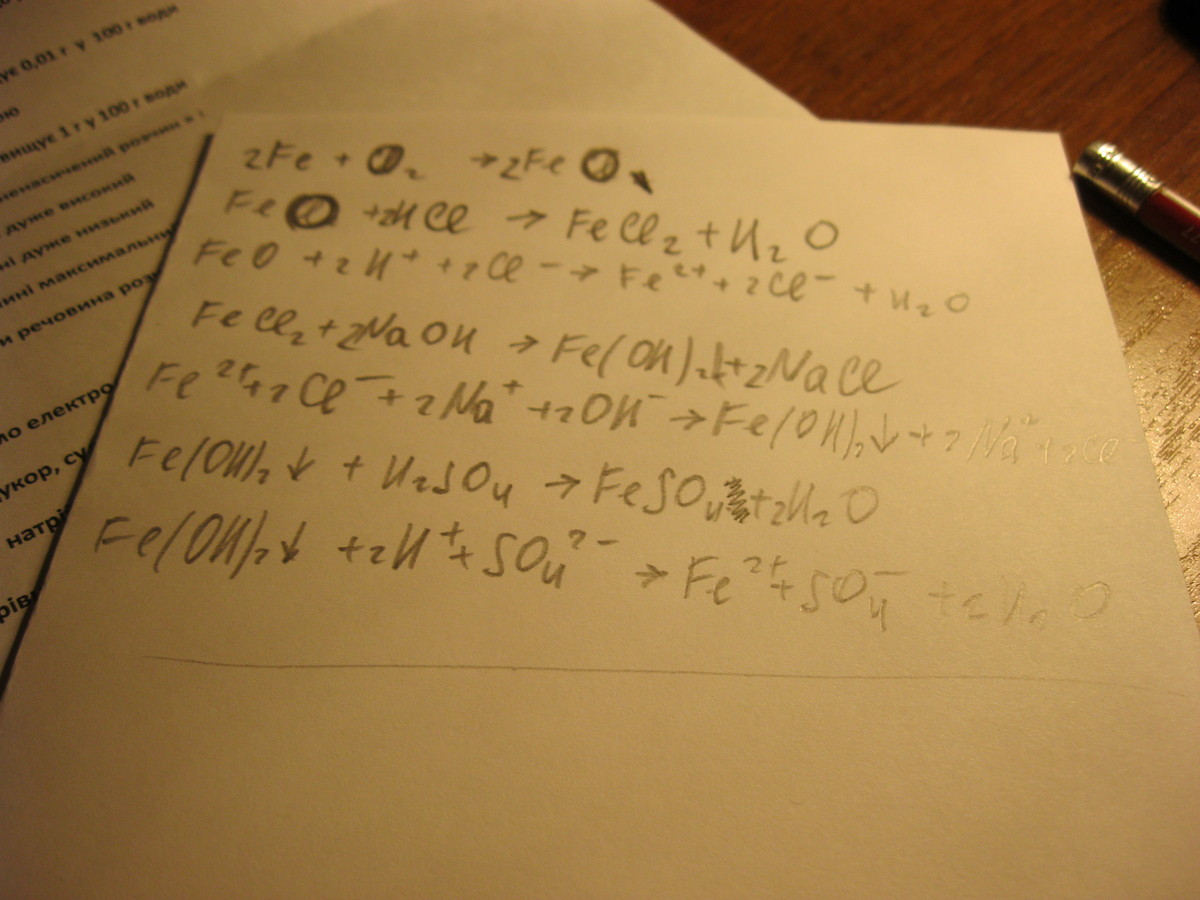 ує 0,01 г у 100 г води
ою
вищує 1 г у 100 г води
ненасичений розчин
дуже високий
ні дуже низький
ині максимальни
и речовина роз
ло електро
укор,
натрі
рів
2Fe + O₂ → 2FeO
FeO + 2HCl → FeCl₂ + H₂O
FeO + 2H⁺ + 2Cl⁻ → Fe²⁺ + 2Cl⁻ + H₂O
FeCl₂ + 2NaOH → Fe(OH)₂↓ + 2NaCl
Fe²⁺ + 2Cl⁻ + 2Na⁺ + 2OH⁻ → Fe(OH)₂↓ + 2Na⁺ + 2Cl⁻
Fe(OH)₂↓ + H₂SO₄ → FeSO₄ + 2H₂O
Fe(OH)₂↓ + 2H⁺ + SO₄²⁻ → Fe²⁺ + SO₄⁻ + 2H₂O